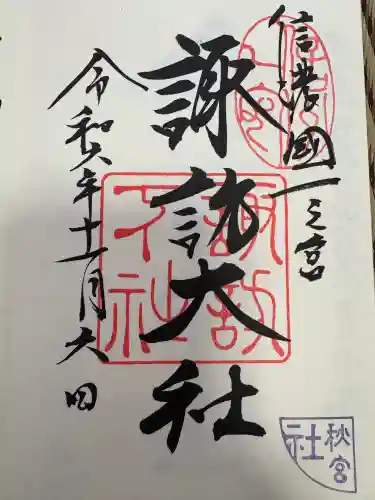 信濃國一之宮
諏訪大社
令和六年十一月六日
諏訪大社
秋宮
社